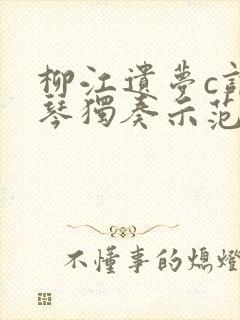 柳江遺夢c
琴獨奏示范
不懂事的熄燈